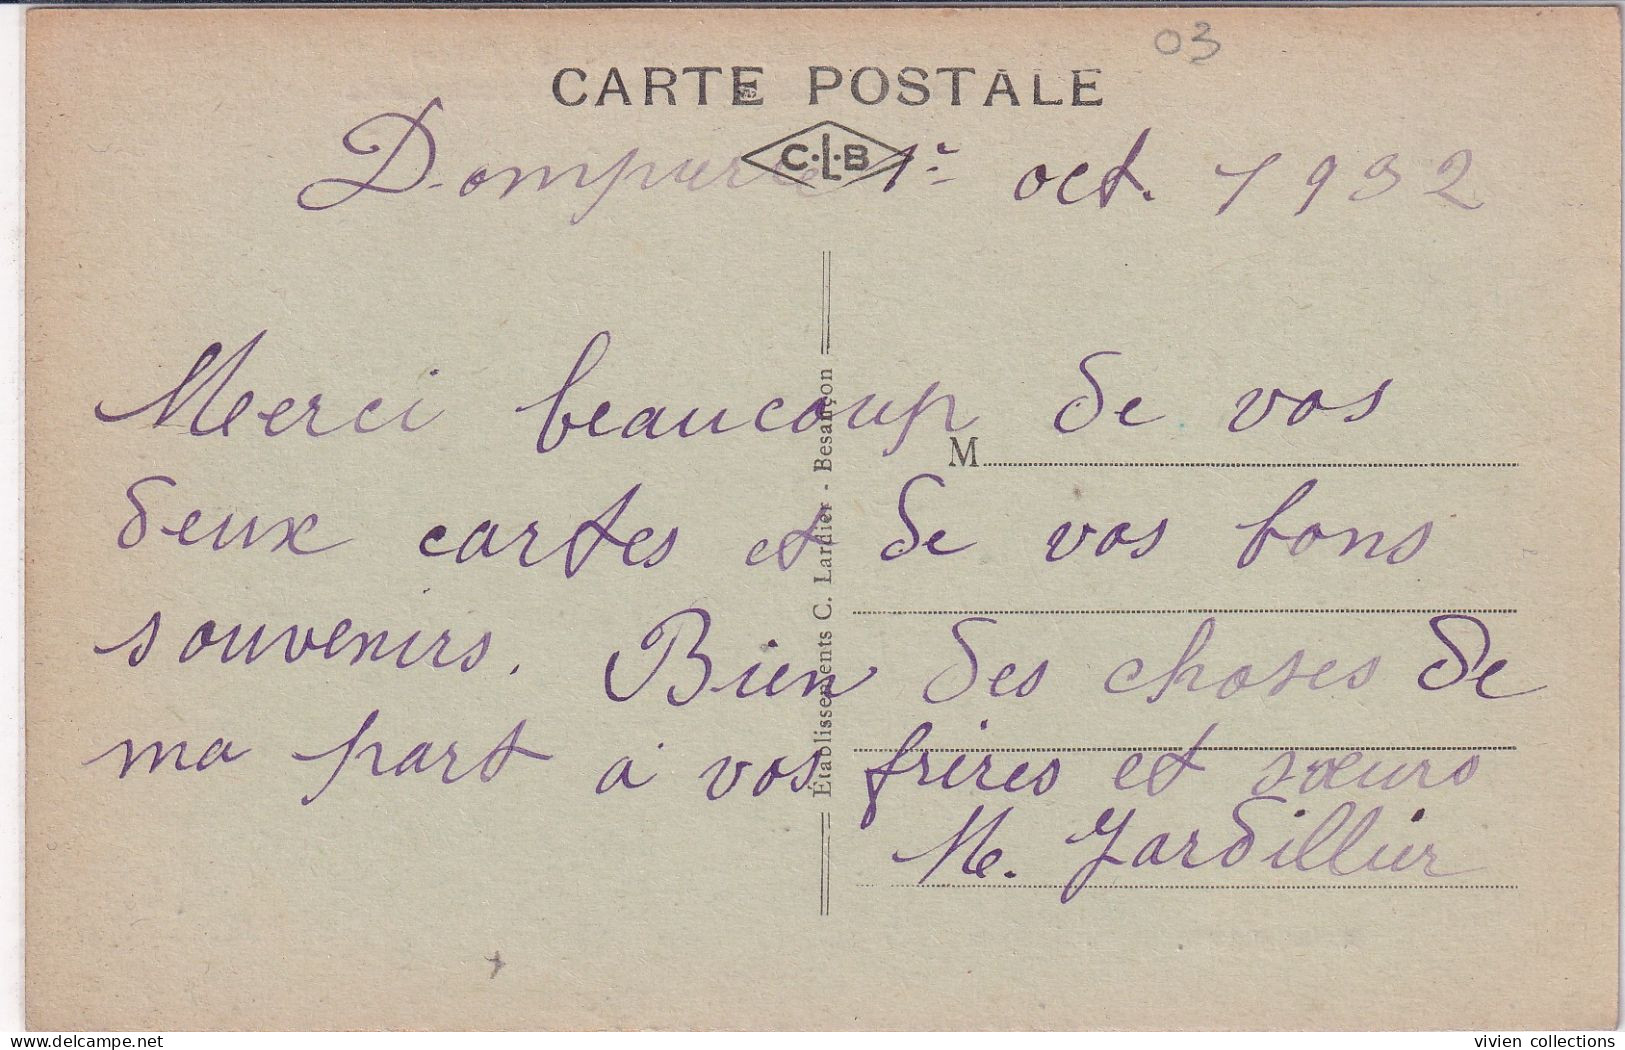 03
CARTE POSTALE
C.L.B
Dompierre 1er oct. 1932
Merci beaucoup de vos
M
deux cartes et de vos bons
souvenirs. Bien des choses de
ma part à vos frères et sœurs
M. Jardillier
Établissements C. Lardier - Besançon
delcampe.net
vivien collections